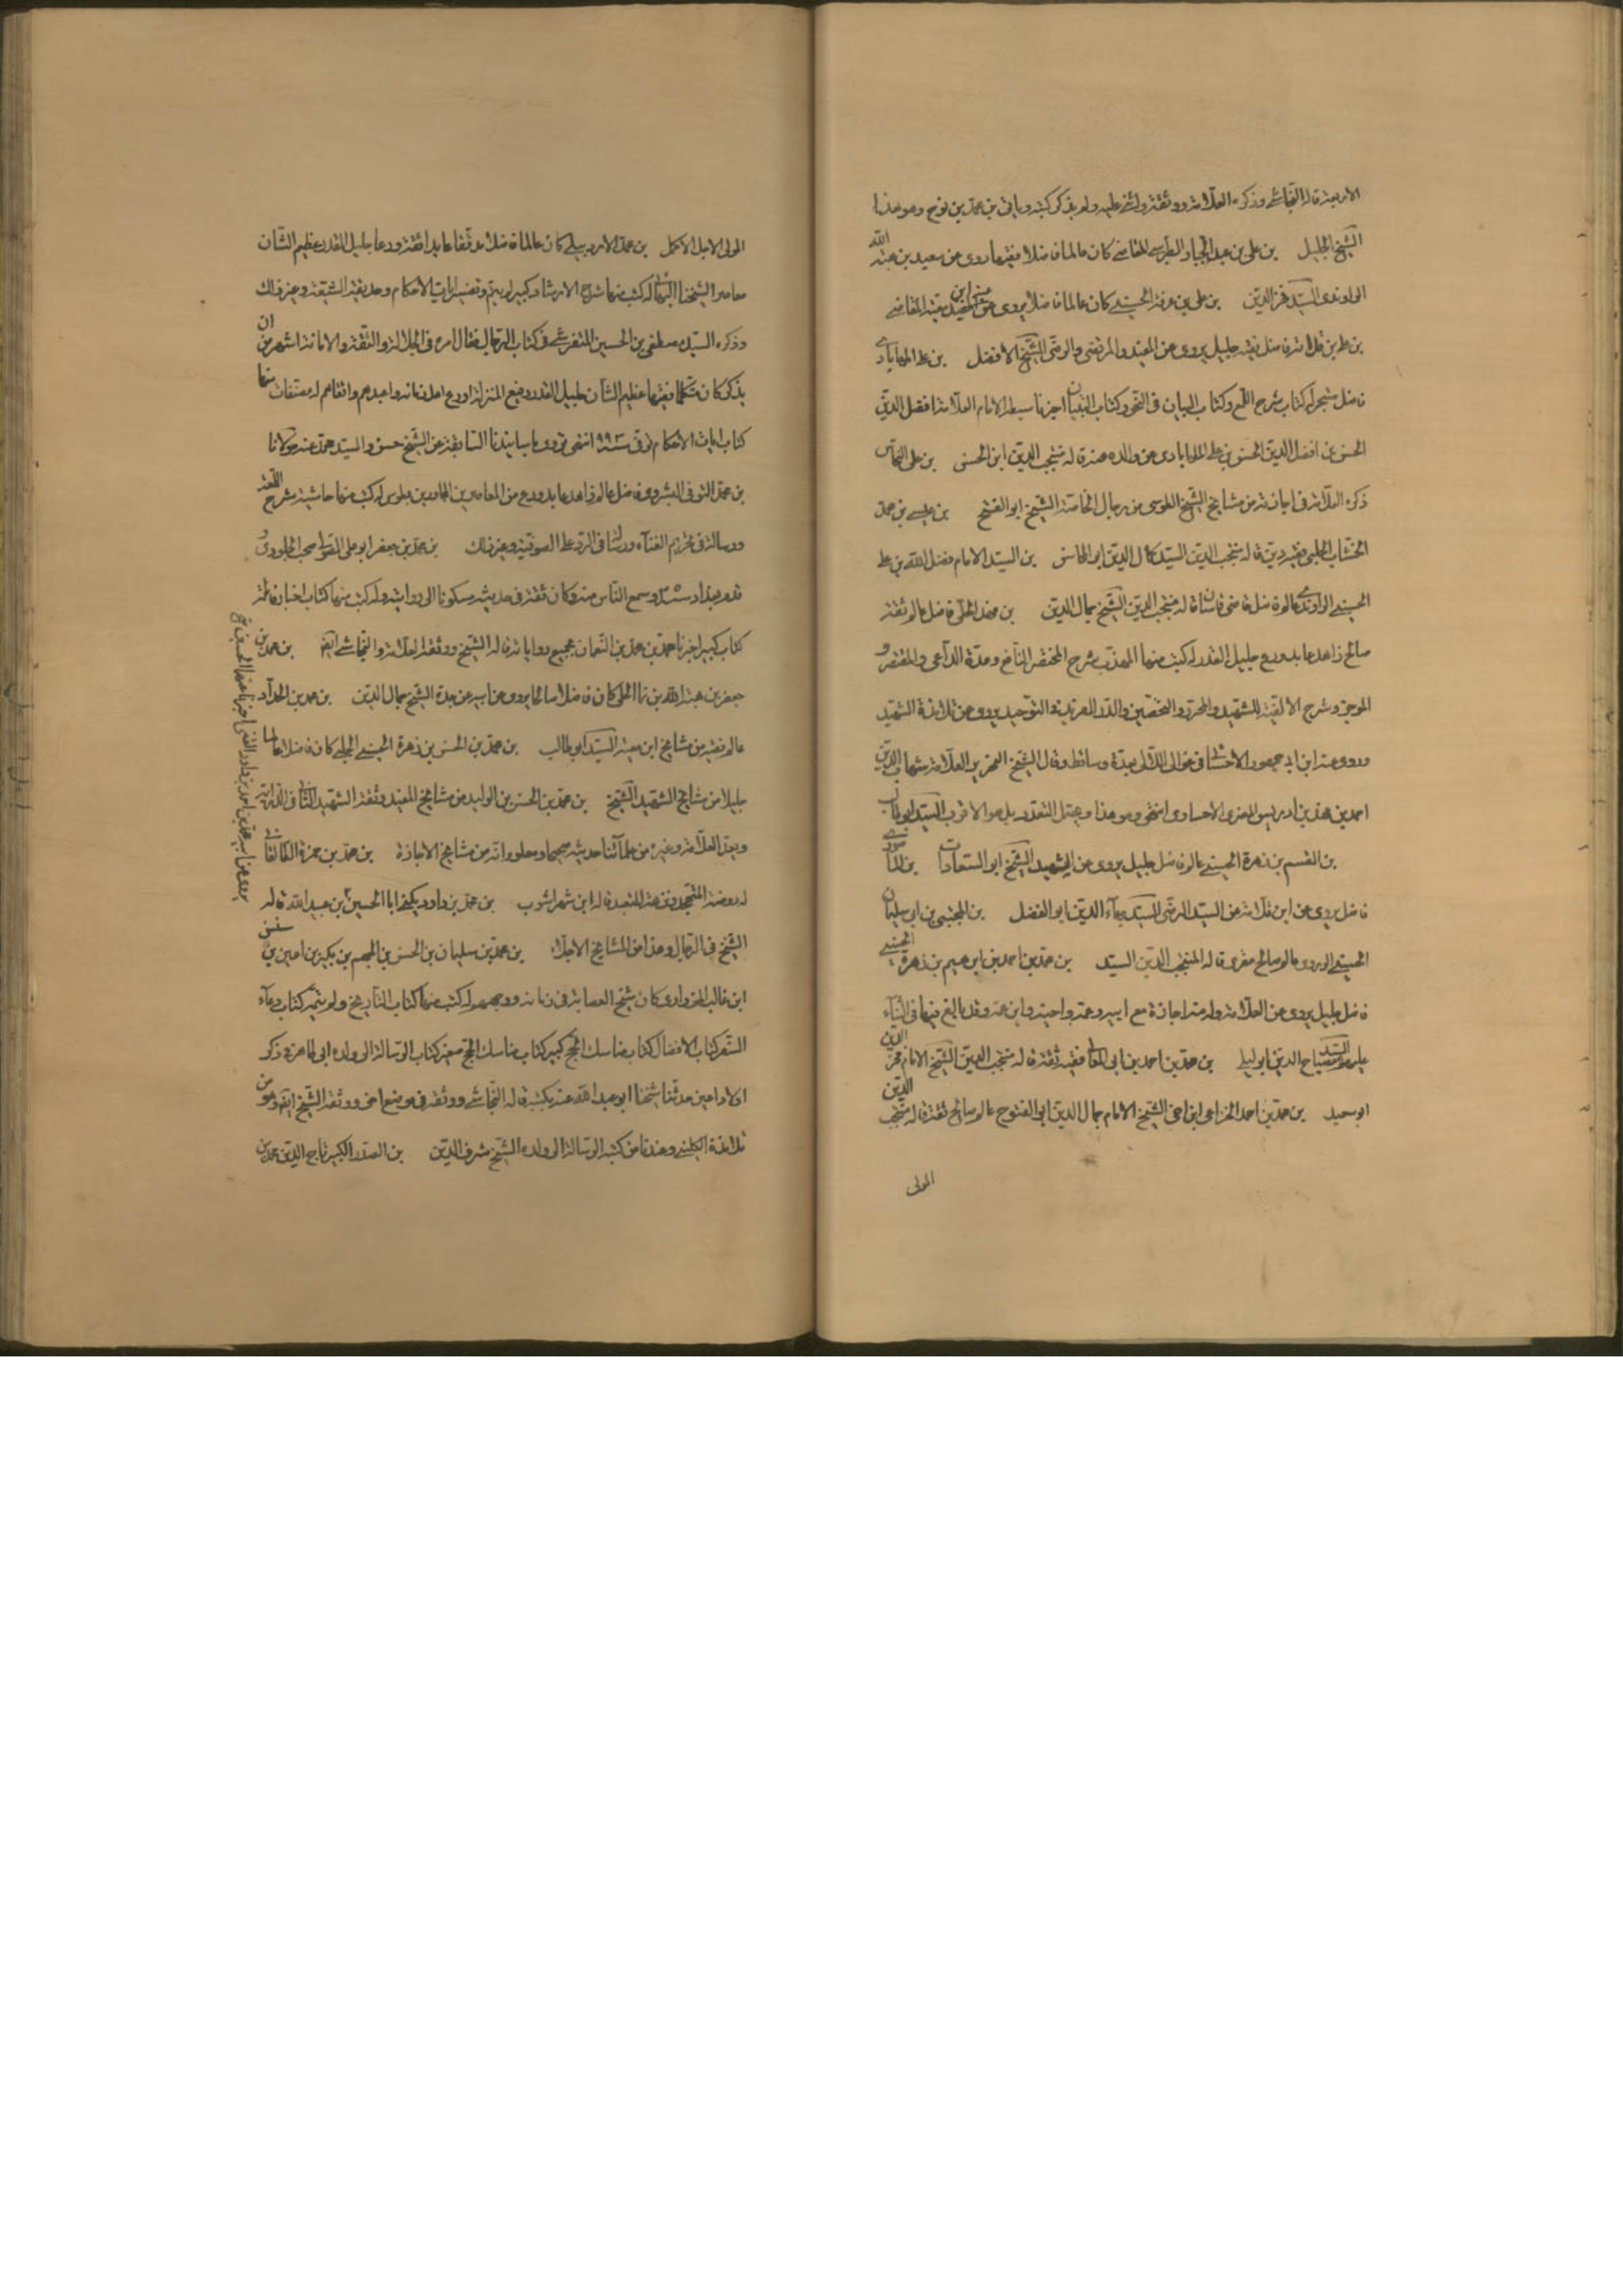 الاربعة قاله النجاشي وذكره العلامة ووثقه واثنى عليه ولم يذكر كتبه وياتي بن محمد بن نوح وهو هذا
الشيخ الجليل بن علي بن عبد الجبار الطبرسي القاضي كان عالما فاضلا فقيها روى عن سعيد بن هبة الله
الراوندي السيد فخر الدين بن علي بن عرفة الحسيني كان عالما فاضلا يروي عنه ابن معية القاضي
بن علي بن قدامة فاضل فقيه جليل يروي عن المفيد والمرتضى والرضي الشيخ الافضل بن علي المهابادي
فاضل متبحر له كتاب شرح اللمع وكتاب البيان في النحو وكتاب التبيان اخبرنا سبطه الامام العلامة افضل الدين
الحسن بن افضل الدين الحسن بن علي المهابادي عن والده عنه قاله منتجب الدين ابن الحسن بن علي النحاس
ذكره العلامة في اجازته من مشايخ الشيخ الطوسي من رجال الخاصة الشيخ ابو الفتح بن عيسى بن محمد
الخشاب الحلبي فقيه دين قاله منتجب الدين السيد كمال الدين ابو المحاسن بن السيد الامام فضل الله بن علي
الحسيني الراوندي عالم فاضل قاضي قاشان قاله منتجب الدين الشيخ جمال الدين بن فهد الحلي فاضل عالم ثقة
صالح زاهد عابد ورع جليل القدر له كتب منها المهذب شرح المختصر النافع وعدة الداعي والمقتصر و
الموجز وشرح الالفية للشهيد والمحرر والتحصين والدر الفريد في التوحيد يروي عن تلامذة الشهيد
وروى عنه ابن ابي جمهور الاحسائي في غوالي اللئالي بعدة وسائط وقال الشيخ النحرير العلامة شهاب الدين
احمد بن فهد بن ادريس المقري الاحساوي انتهى وهو هذا ويحتمل التعدد بل هو الاقرب السيد ابو طالب
بن القسم بن زهرة الحسيني عالم فاضل جليل يروي عن الشهيد الشيخ ابو السعادات بن الماصوري
فاضل يروي عن ابن قدامة عن السيد الرضي السيد بهاء الدين ابو الفضل بن المجتبى بن ابي سليمان
الحسيني الوردي عالم صالح مقري قاله المنتجب الدين السيد بن محمد بن احمد بن ابراهيم بن زهرة الحسيني
فاضل جليل يروي عن العلامة وله منه اجازة مع ابيه وعمه واخيه وابن عمه وقد بالغ فيها في الثناء
عليهم السيد مصباح الدين ابو ليلى بن محمد بن احمد بن ابي المعالي فقيه ثقة قاله منتجب الدين الشيخ الامام فخر الدين
ابو سعيد بن محمد بن احمد الخزاعي ابن اخي الشيخ الامام جمال الدين ابو الفتوح عالم صالح ثقة قاله منتجب الدين
المولى
المولى الاجل الاكمل بن محمد الاردبيلي كان عالما فاضلا مدققا عابدا ثقة ورعا جليل القدر عظيم الشأن
معاصرا لشيخنا البهائي له كتب منها شرح الارشاد كبير لم يتم وتفسير ايات الاحكام وحديقة الشيعة وغير ذلك
وذكره السيد مصطفى بن الحسين التفرشي في كتاب الرجال فقال امره في الجلالة والثقة والامانة اشهر من ان
يذكر كان متكلما فقيها عظيم الشأن جليل القدر رفيع المنزلة اورع اهل زمانه واعبدهم واتقاهم له مصنفات منها
كتاب ايات الاحكام توفي سنة ٩٩٣ انتهى نروي باسانيدنا السابقة عن الشيخ حسن والسيد محمد عنه مولانا
بن محمد التوني البشروي فاضل عالم زاهد عابد ورع من المعاصرين المجاورين بطوس له كتب منها حاشية شرح اللمعة
ورسالة في تحريم الغناء ورسالة في الرد على الصوفية وغير ذلك بن محمد بن جعفر ابو علي الصولي صحب الجلودي و
قدم بغداد سنة ٣٥٣ وسمع الناس منه وكان ثقة في حديثه مسكونا الى روايته وله كتب منها كتاب اخبار فاطمة
كتاب كبير اخبرنا محمد بن محمد بن النعمان بجميع رواياته قاله الشيخ ووثقه العلامة والنجاشي ايضا بن محمد بن
جعفر بن هبة الله بن نما الحلي كان فاضلا صالحا يروي عن ابيه عن جده الشيخ جمال الدين بن محمد بن الحداد
عالم فقيه من مشايخ ابن معية السيد ابو طالب بن محمد بن الحسن بن زهرة الحسيني الحلبي كان فاضلا عالما
جليلا من مشايخ الشهيد الشيخ بن محمد بن الحسن بن الوليد من مشايخ المفيد وثقه الشهيد الثاني في الدراية
ويعد العلامة وغيره من علمائنا حديثه صحيحا ومعلوم انه من مشايخ الاجازة بن محمد بن حمزة الطالقاني
له روضة المتهجد ونزهة المتعبد قاله ابن شهراشوب بن محمد بن داود يكنى ابا الحسين بن عبيد الله قاله
الشيخ في الرجال وهذا من المشايخ الاجلاء بن محمد بن سليمان بن الحسن بن الجهم بن بكير بن اعين بن سنسن
ابو غالب الزراري كان شيخ العصابة في زمانه ووجههم له كتب منها كتاب التأريخ ولم يتمه كتاب دعاء
السفر كتاب الافضال كتاب مناسك الحج كبير كتاب مناسك الحج صغير كتاب الرسالة الى ولده ابي طاهر في ذكر
اولاد اعين حدثنا شيخنا ابو عبد الله عنه بكتبه قاله النجاشي ووثقه في موضع اخر ووثقه الشيخ ايضا وهو من
تلامذة الكليني وعندنا من كتبه الرسالة الى ولده الشيخ شرف الدين بن الصدر الكبير تاج الدين محمد بن